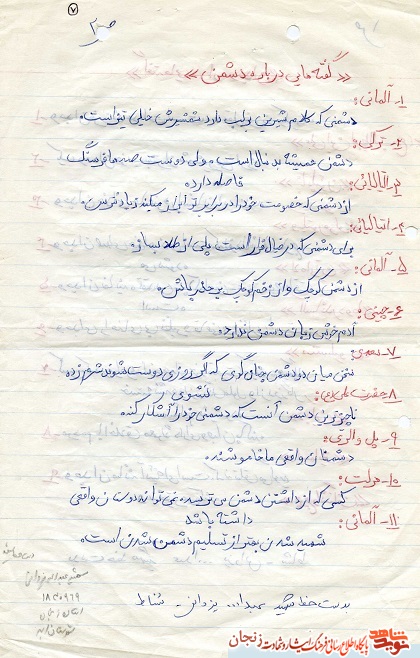 ۷
« گفته هایی درباره دشمن »
۱- آلمانی:
دشمنی که کلام شیرین بر لب دارد شمشیرش خیلی تیز است.
۲- ترکی:
دشمن همیشه به دنبال است. ولی دوست صدها فرسنگ
فاصله دارد.
۳- ایتالیائی:
از دشمنی که خصومت خود را در برابر تو ابراز میکند زیاد نترس.
۴- ایتالیائی:
برای دشمنی که در خیال فرار است پلی از طلا بساز.
۵- آلمانی:
از دشمن کوچک و از زخم کوچک بر حذر باش.
۶- چینی:
آدم خوش زبان دشمن ندارد.
۷- سعدی:
سخن میان دو دشمن چنان گوی که اگر روزی دوست شوند شرم زده
نشوی
۸- حضرت علی (ع):
ناچیزترین دشمن آنست که دشمنی خود را آشکار کند.
۹- پل والری:
دشمنان واقعی ما خاموشند.
۱۰- هزلت:
کسی که از داشتن دشمن می ترسد نمی تواند دوستان واقعی
داشته باشد
۱۱- آلمانی:
شهید شدن بهتر از تسلیم دشمن شدن است.
دست خط شهید عبدا... یزدانی - شناط
شهید عبداله یزدانی
استان زنجان
نوید شاهد
پایگاه اطلاع رسانی فرهنگ ایثار و شهادت زنجان